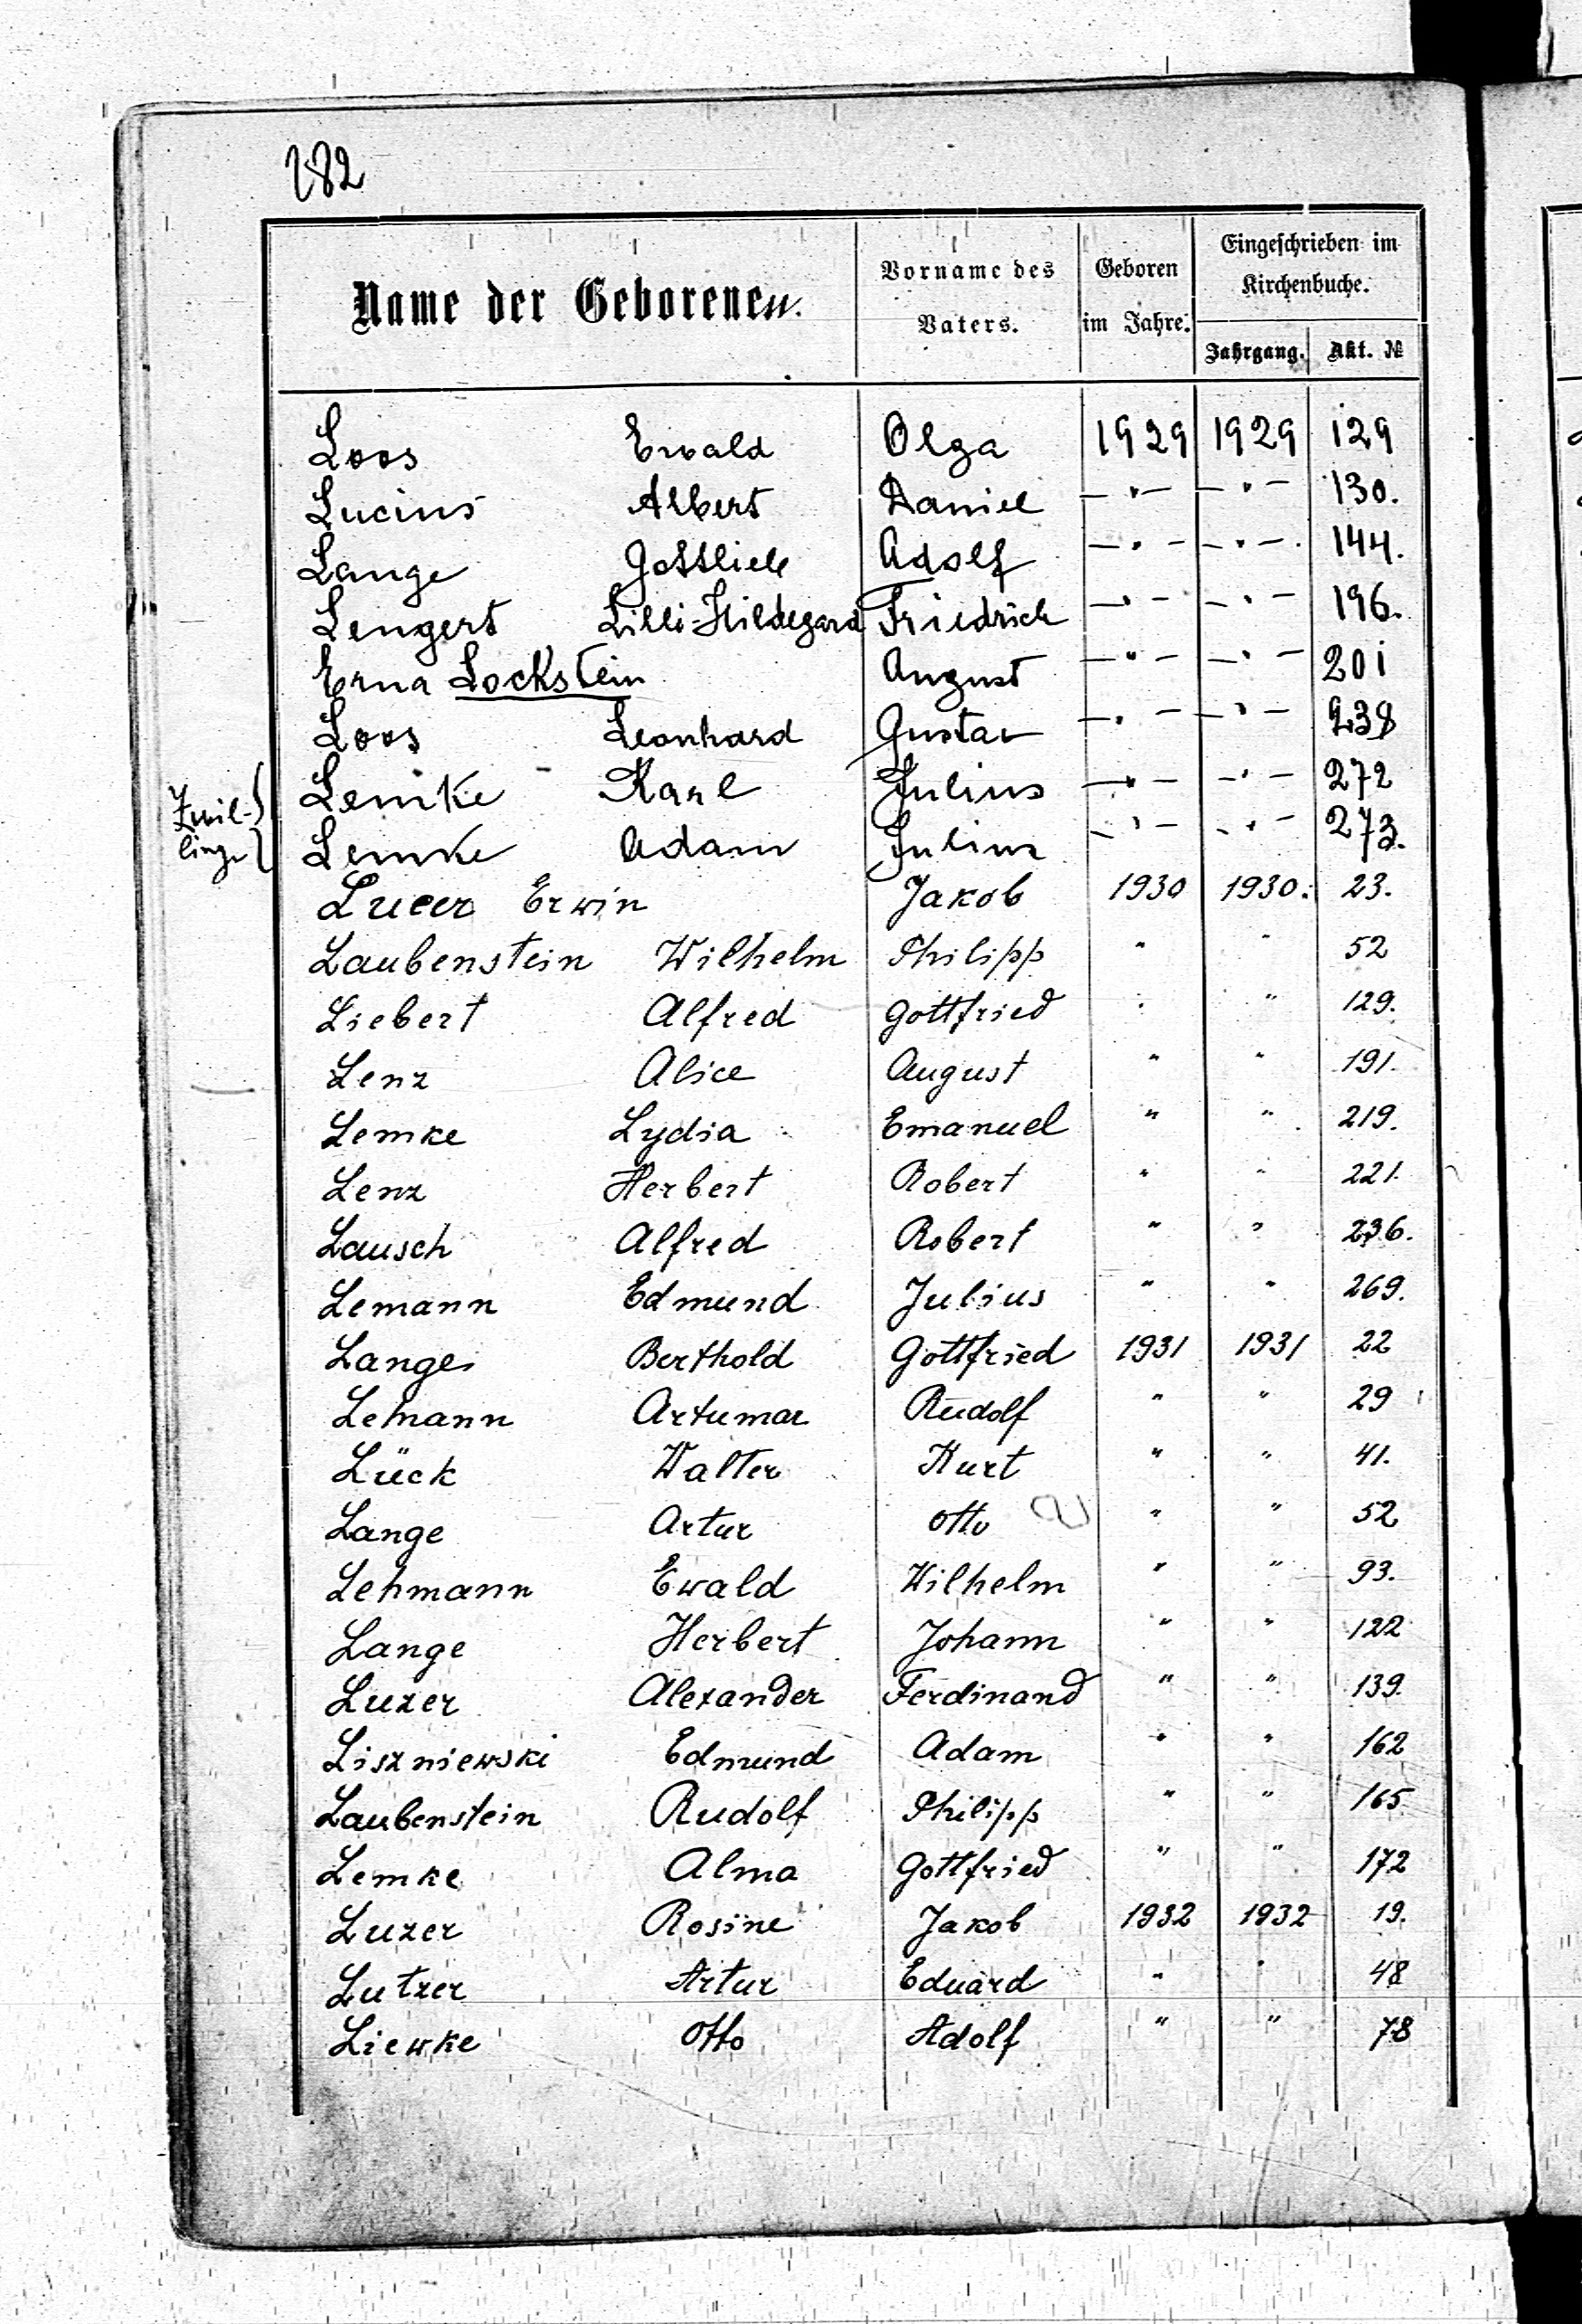 182
Name der Geborenen.
Vorname des Vaters.
Geboren im Jahre.
Eingeschrieben im Kirchenbuche.
Jahrgang. Akt. №
Loos Ewald Olga 1929 1929 129
Lucius Albert Daniel —"— —"— 130.
Lange Gottlieb Adolf —"— —"— 144.
Lengert Lilli-Hildegard Friedrich —"— —"— 196.
Erna Lockstein August —"— —"— 201
Loos Leonhard Gustav —"— —"— 238
Zwil-
linge
Lemke Karl Julius —"— —"— 272
Lemke Adam Julius —"— —"— 273.
Lucer Erwin Jakob 1930 1930. 23.
Laubenstein Wilhelm Philipp " " 52
Liebert Alfred Gottfried " " 129.
Lenz Alice August " " 191.
Lemke Lydia Emanuel " " 219.
Lenz Herbert Robert " " 221.
Lausch Alfred Robert " " 236.
Lemann Edmund Julius " " 269.
Lange Berthold Gottfried 1931 1931 22
Lehann Artumar Rudolf " " 29
Lück Walter Kurt " " 41.
Lange Artur Otto " " 52
Lehmann Ewald Wilhelm " " 93.
Lange Herbert Johann " " 122
Luzer Alexander Ferdinand " " 139.
Liszniewski Edmund Adam " " 162
Laubenstein Rudolf Philipp " " 165
Lemke Alma Gottfried " " 172
Luzer Rosine Jakob 1932 1932 19.
Lutzer Artur Eduard " " 48
Liewke Otto Adolf " " 78